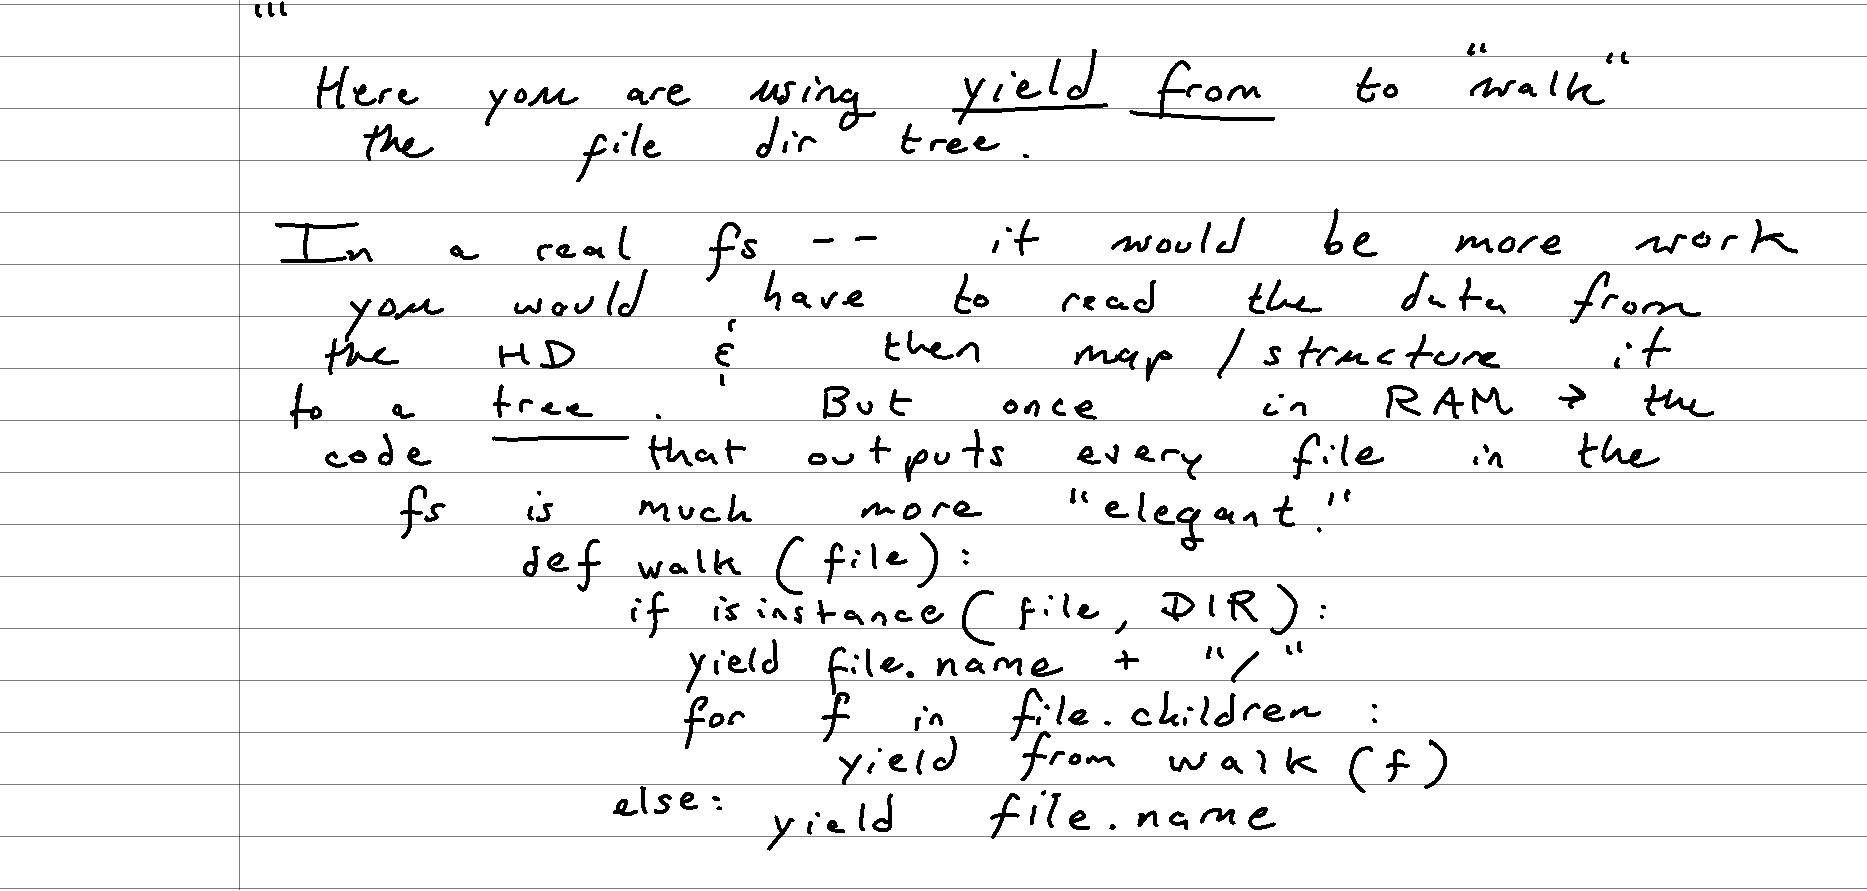 "'
Here you are using yield from to "walk"
the file dir tree.
In a real fs -- it would be more work
you would have to read the data from
the HD & then map / structure it
to a tree. But once in RAM → the
code that outputs every file in the
fs is much more "elegant."
def walk (file):
if isinstance (file, DIR):
yield file.name + "/"
for f in file.children:
yield from walk (f)
else: yield file.name